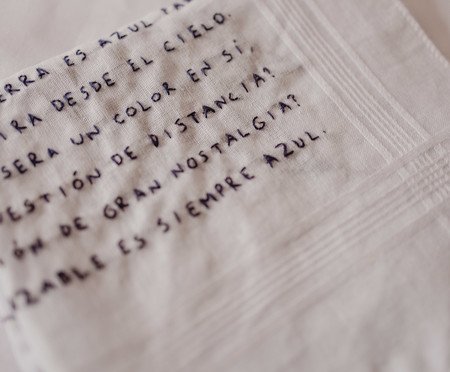 ERRA ES AZUL PA
IRA DESDE EL CIELO.
SERA UN COLOR EN SÍ,
UESTIÓN DE DISTANCIA?
IÓN DE GRAN NOSTALGIA?
NZABLE ES SIEMPRE AZUL.